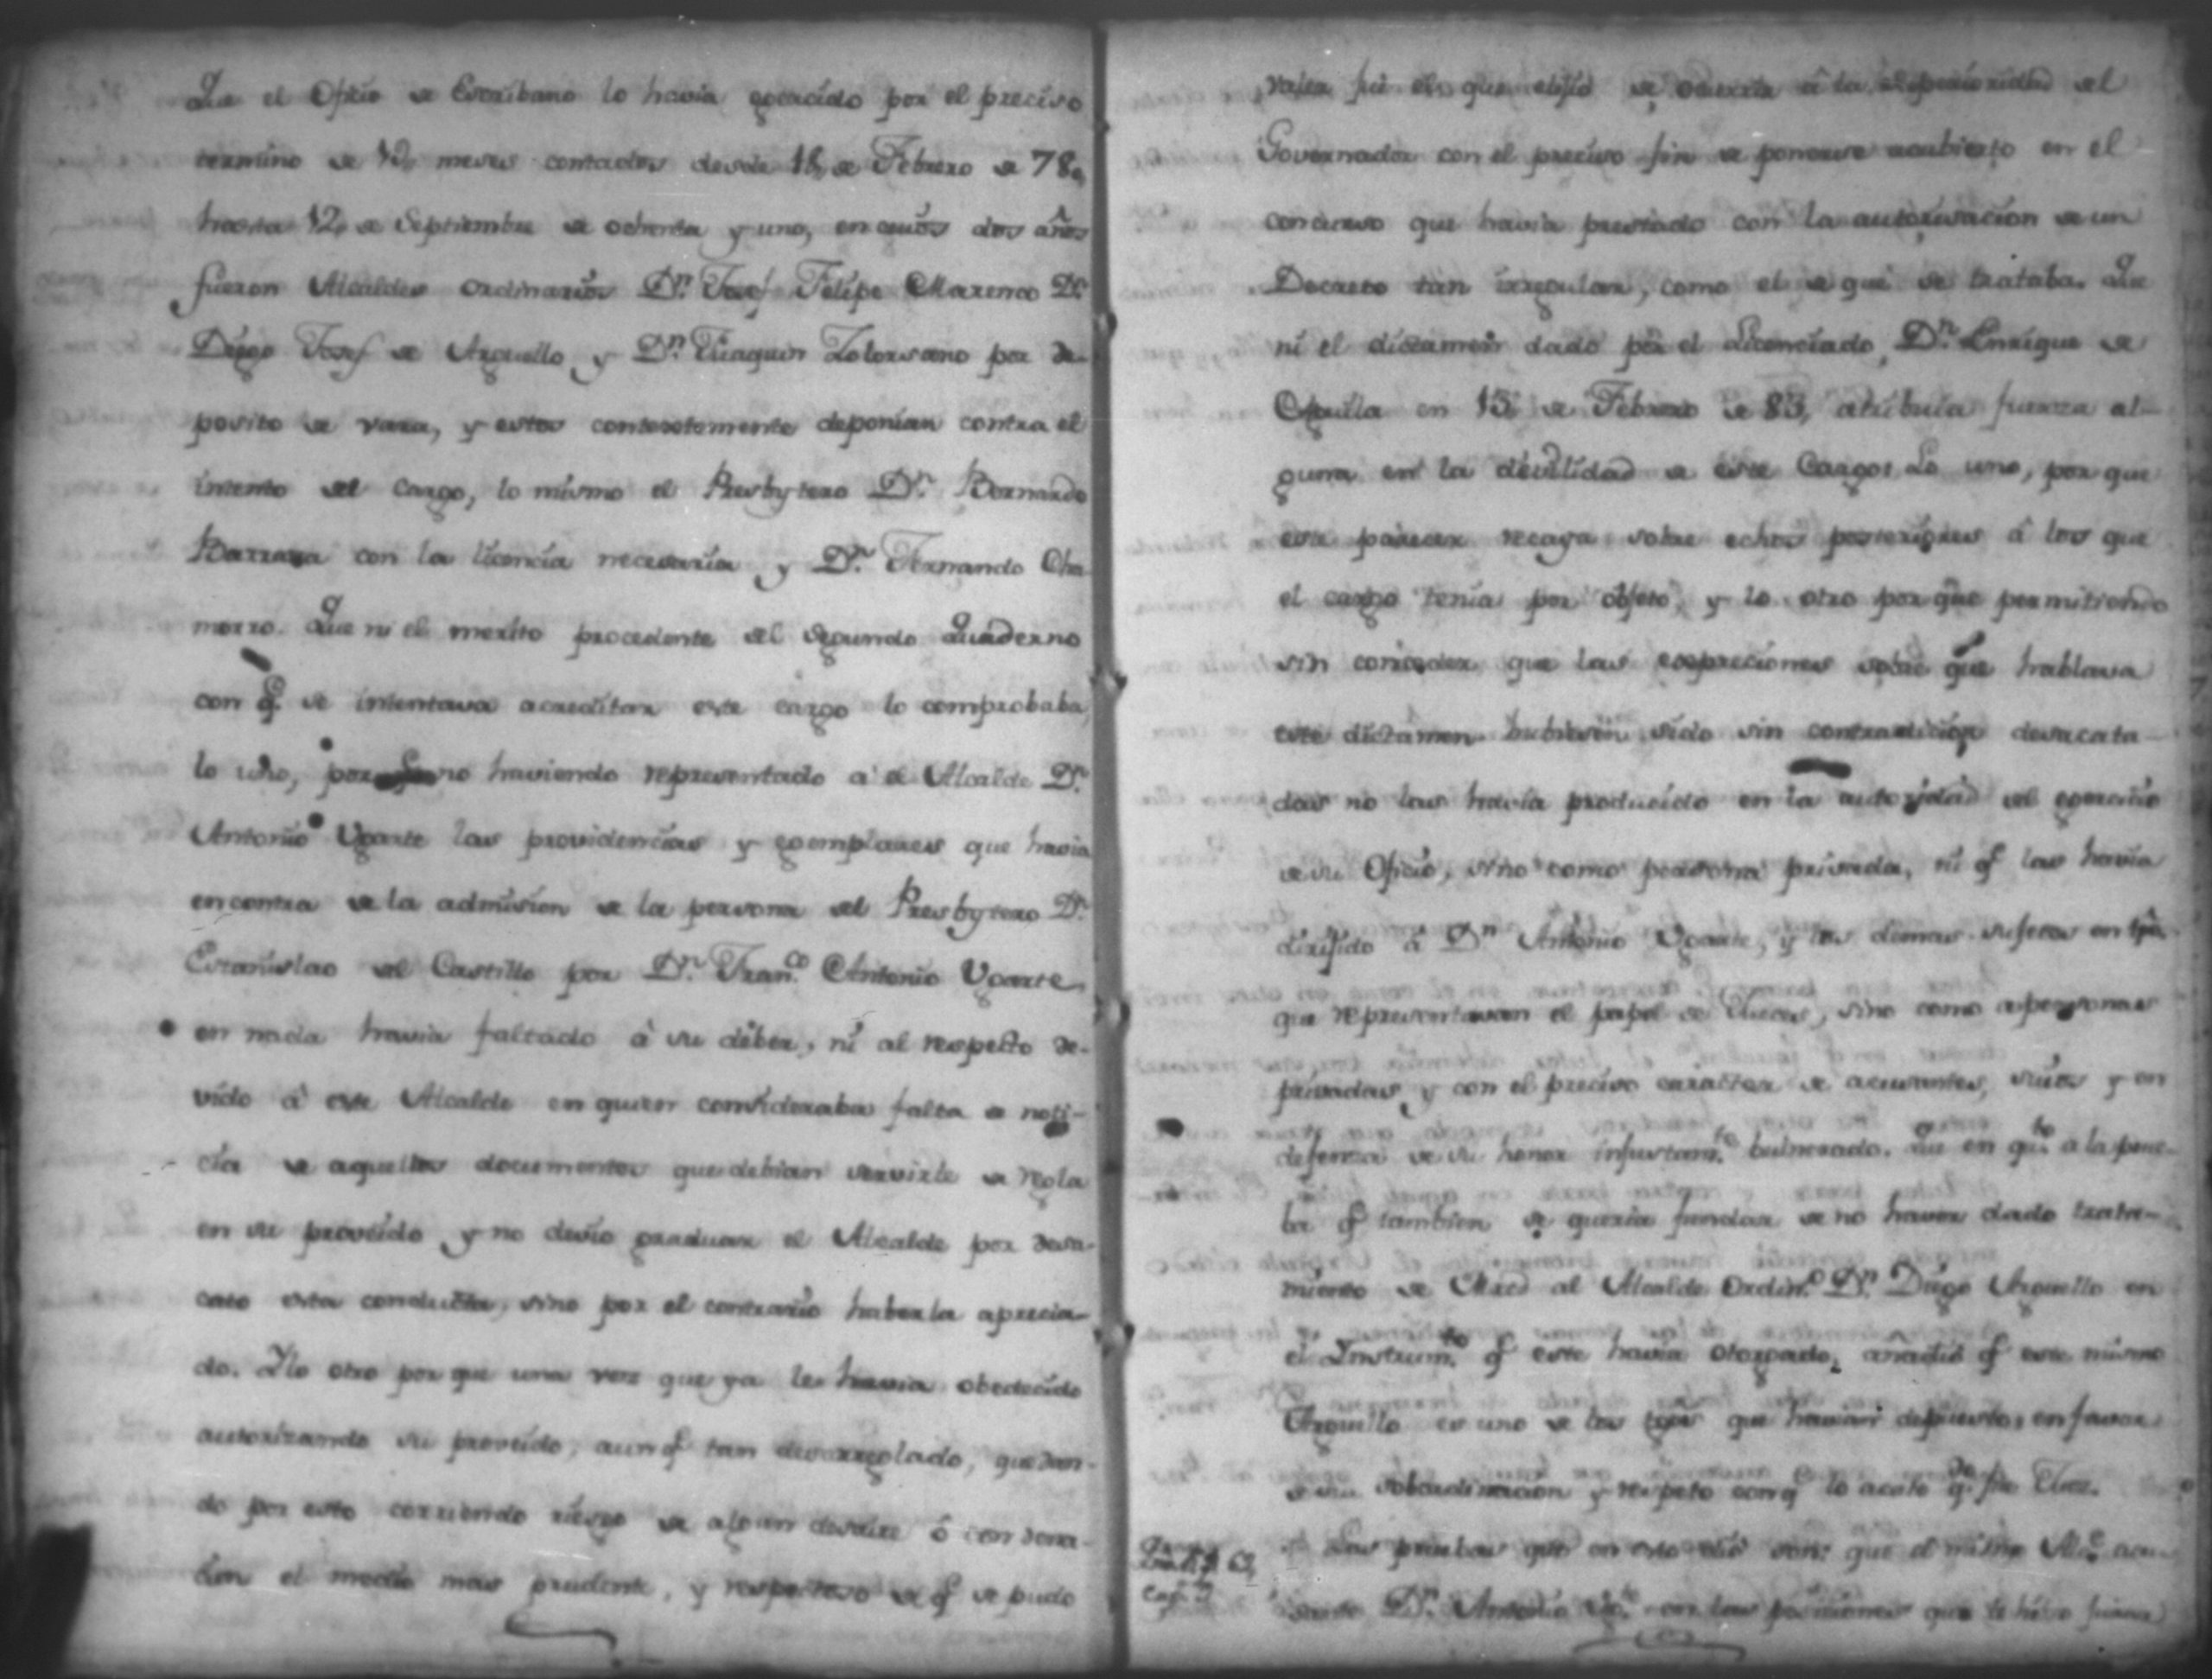 Que el Oficio de Escribano lo havia exercido por el preciso
termino de 19, meses contados desde 18, de Febrero de 78,
hasta 12, de Septiembre de ochenta y uno, en cuios dos años
fueron Alcaldes ordinarios Dn. Josef Felipe Marenco Dn.
Diego Josef de Arguello, y Dn. Juaquin Solorsano por de-
posito de vara, y estos contextemente deponian contra el
intento del cargo, lo mismo el Presbytero Dn. Bernardo
Barraza con la licencia necesaria y Dn. Fernando Cha-
morro. Que ni el merito procedente del segundo Quaderno
con q. se intentava acreditar este cargo lo comprobaba,
lo uno, por no haviendo representado a el Alcalde Dn.
Antonio Ugarte las providencias y exemplares que havia
en contra de la admision de la persona del Presbytero Dn.
Estanislao del Castillo por Dn. Franco. Antonio Ugarte,
en nada havia faltado à su deber, ni al respecto de-
vido à este Alcalde en quien consideraba falta de noti-
cia de aquellos documentos que debian servirle de regla
en su proveido y no devio graduar el Alcalde por desa-
cato esta conducta, sino por el contrario haberla aprecia-
do. Y lo otro por que una vez que ya le havia obedecido
autorizando su proveido, aunq. tan desarreglado, quedan-
do por esto corriendo riesgo de algun desaire ó condena-
cion el medio mas prudente, y respectoso de q. se pudo
valer fue el que elijió de ocurrir â la superioridad del
Governador con el preciso fin de ponerse acubierto en el
concurso que havia prestado con la autorisacion de un
Decreto tan irregular, como el de que se trataba. Que
ni el dictamen dado por el Licenciado Dn. Enrique de
Aguila en 15, de Febrero de 83, atribuia fuerza al-
guna en la devilidad de este Cargo: Lo uno, por que
este parecer recaya sobre echos posteriores â los que
el cargo tenia por objeto, y lo otro por que permitiendo
sin conceder que las expreciones sobre que hablava
este dictamen hubiesen sido sin contradicion desacata-
das no las havia producido en la autoridad del exercicio
de su Oficio, sino como persona privada, ni q. las havia
dirijido â Dn. Antonio Ugarte, y los demas sujetos en tpo.
que representavan el papel de Jueces, sino como a personas
privadas, y con el preciso caracter de acusantes, suios y en
defenza de su honor injustamte. bulnerado. Que en qto. a la prue-
ba q. tambien se queria fundar de no haver dado trata-
miento de Mrcd al Alcalde Ordino. Dn. Diego Arguello en
el Instrumto. q. este havia otorgado, añadió q. este mismo
Arguello es uno de los tgos. que havian depuesto, en favor
de su subordinacion y respeto con q. lo acató qdo. fue Juez.
Las pruebas que en esto dió son: que el mismo Alce. acu-
sante Dn. Antonio Ugte. en las posiciones que le hizo